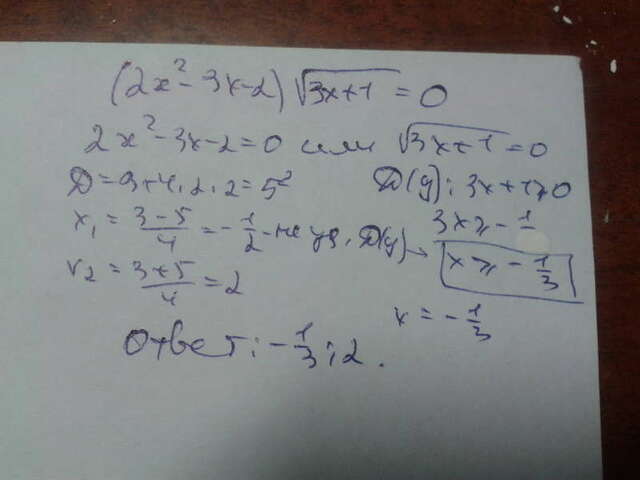 (2x²-3x-2)√3x+1=0
2x²-3x-2=0 или √3x+1=0
D=9+4·2·2=5² D(y): 3x+1≥0
x₁=3-5/4=-1/2-не уд. D(y)→ 3x≥-1
x₂=3+5/4=2 x≥-1/3
x=-1/3
Ответ: -1/3; 2.